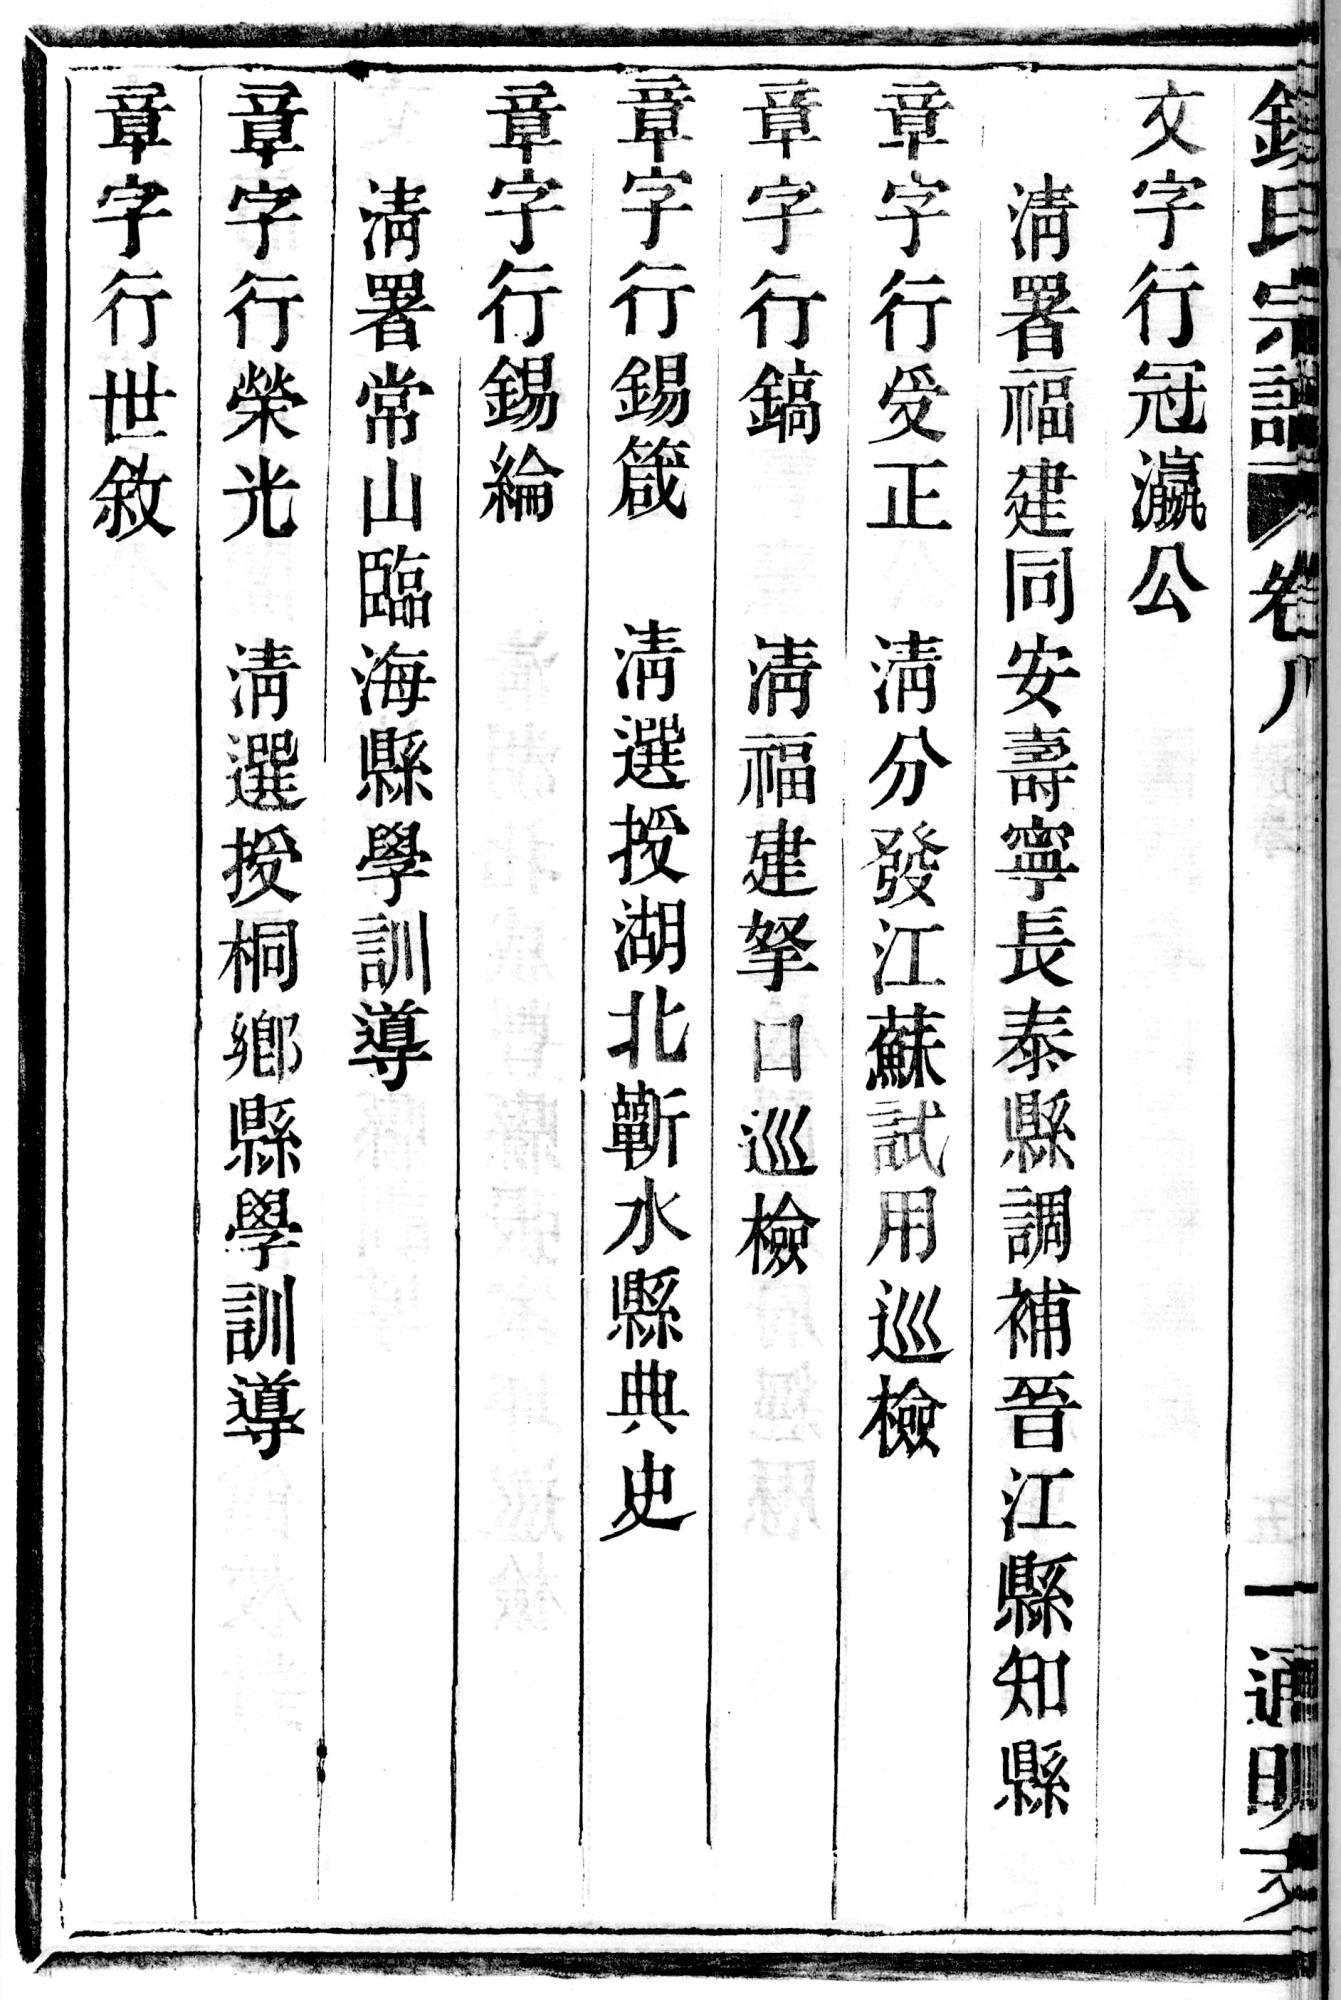 錢氏宗譜 卷八 通明支
文字行冠瀛公
淸署福建同安壽寧長泰縣調補晉江縣知縣
章字行受正 淸分發江蘇試用巡檢
章字行鎬 淸福建拏口巡檢
章字行錫箴 淸選授湖北蘄水縣典史
章字行錫綸
淸署常山臨海縣學訓導
章字行榮光 淸選授桐鄉縣學訓導
章字行世敘